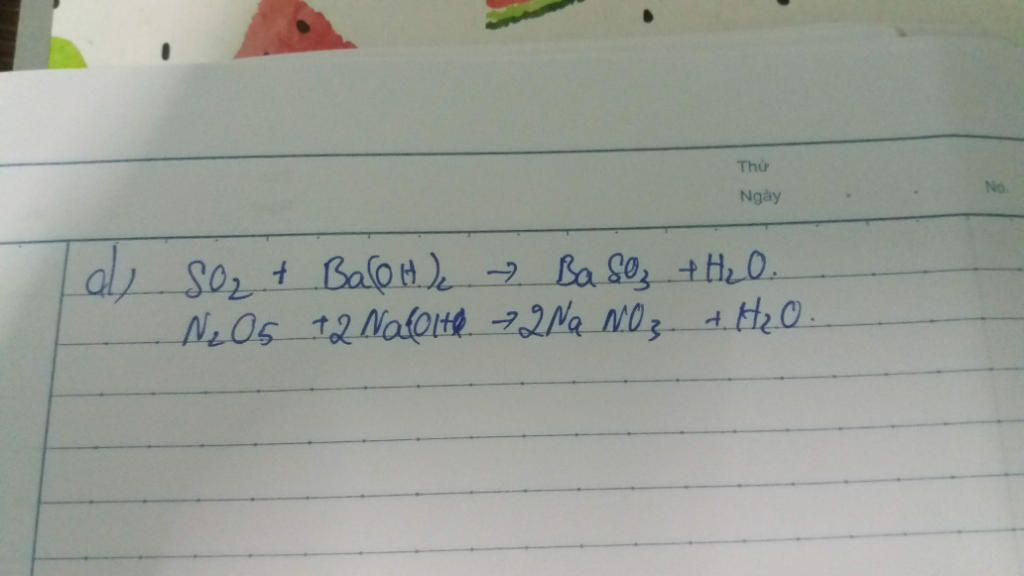 Thứ
Ngày
No.
d) SO2 + Ba(OH)2 → BaSO3 + H2O.
N2O5 + 2NaOH → 2NaNO3 + H2O.